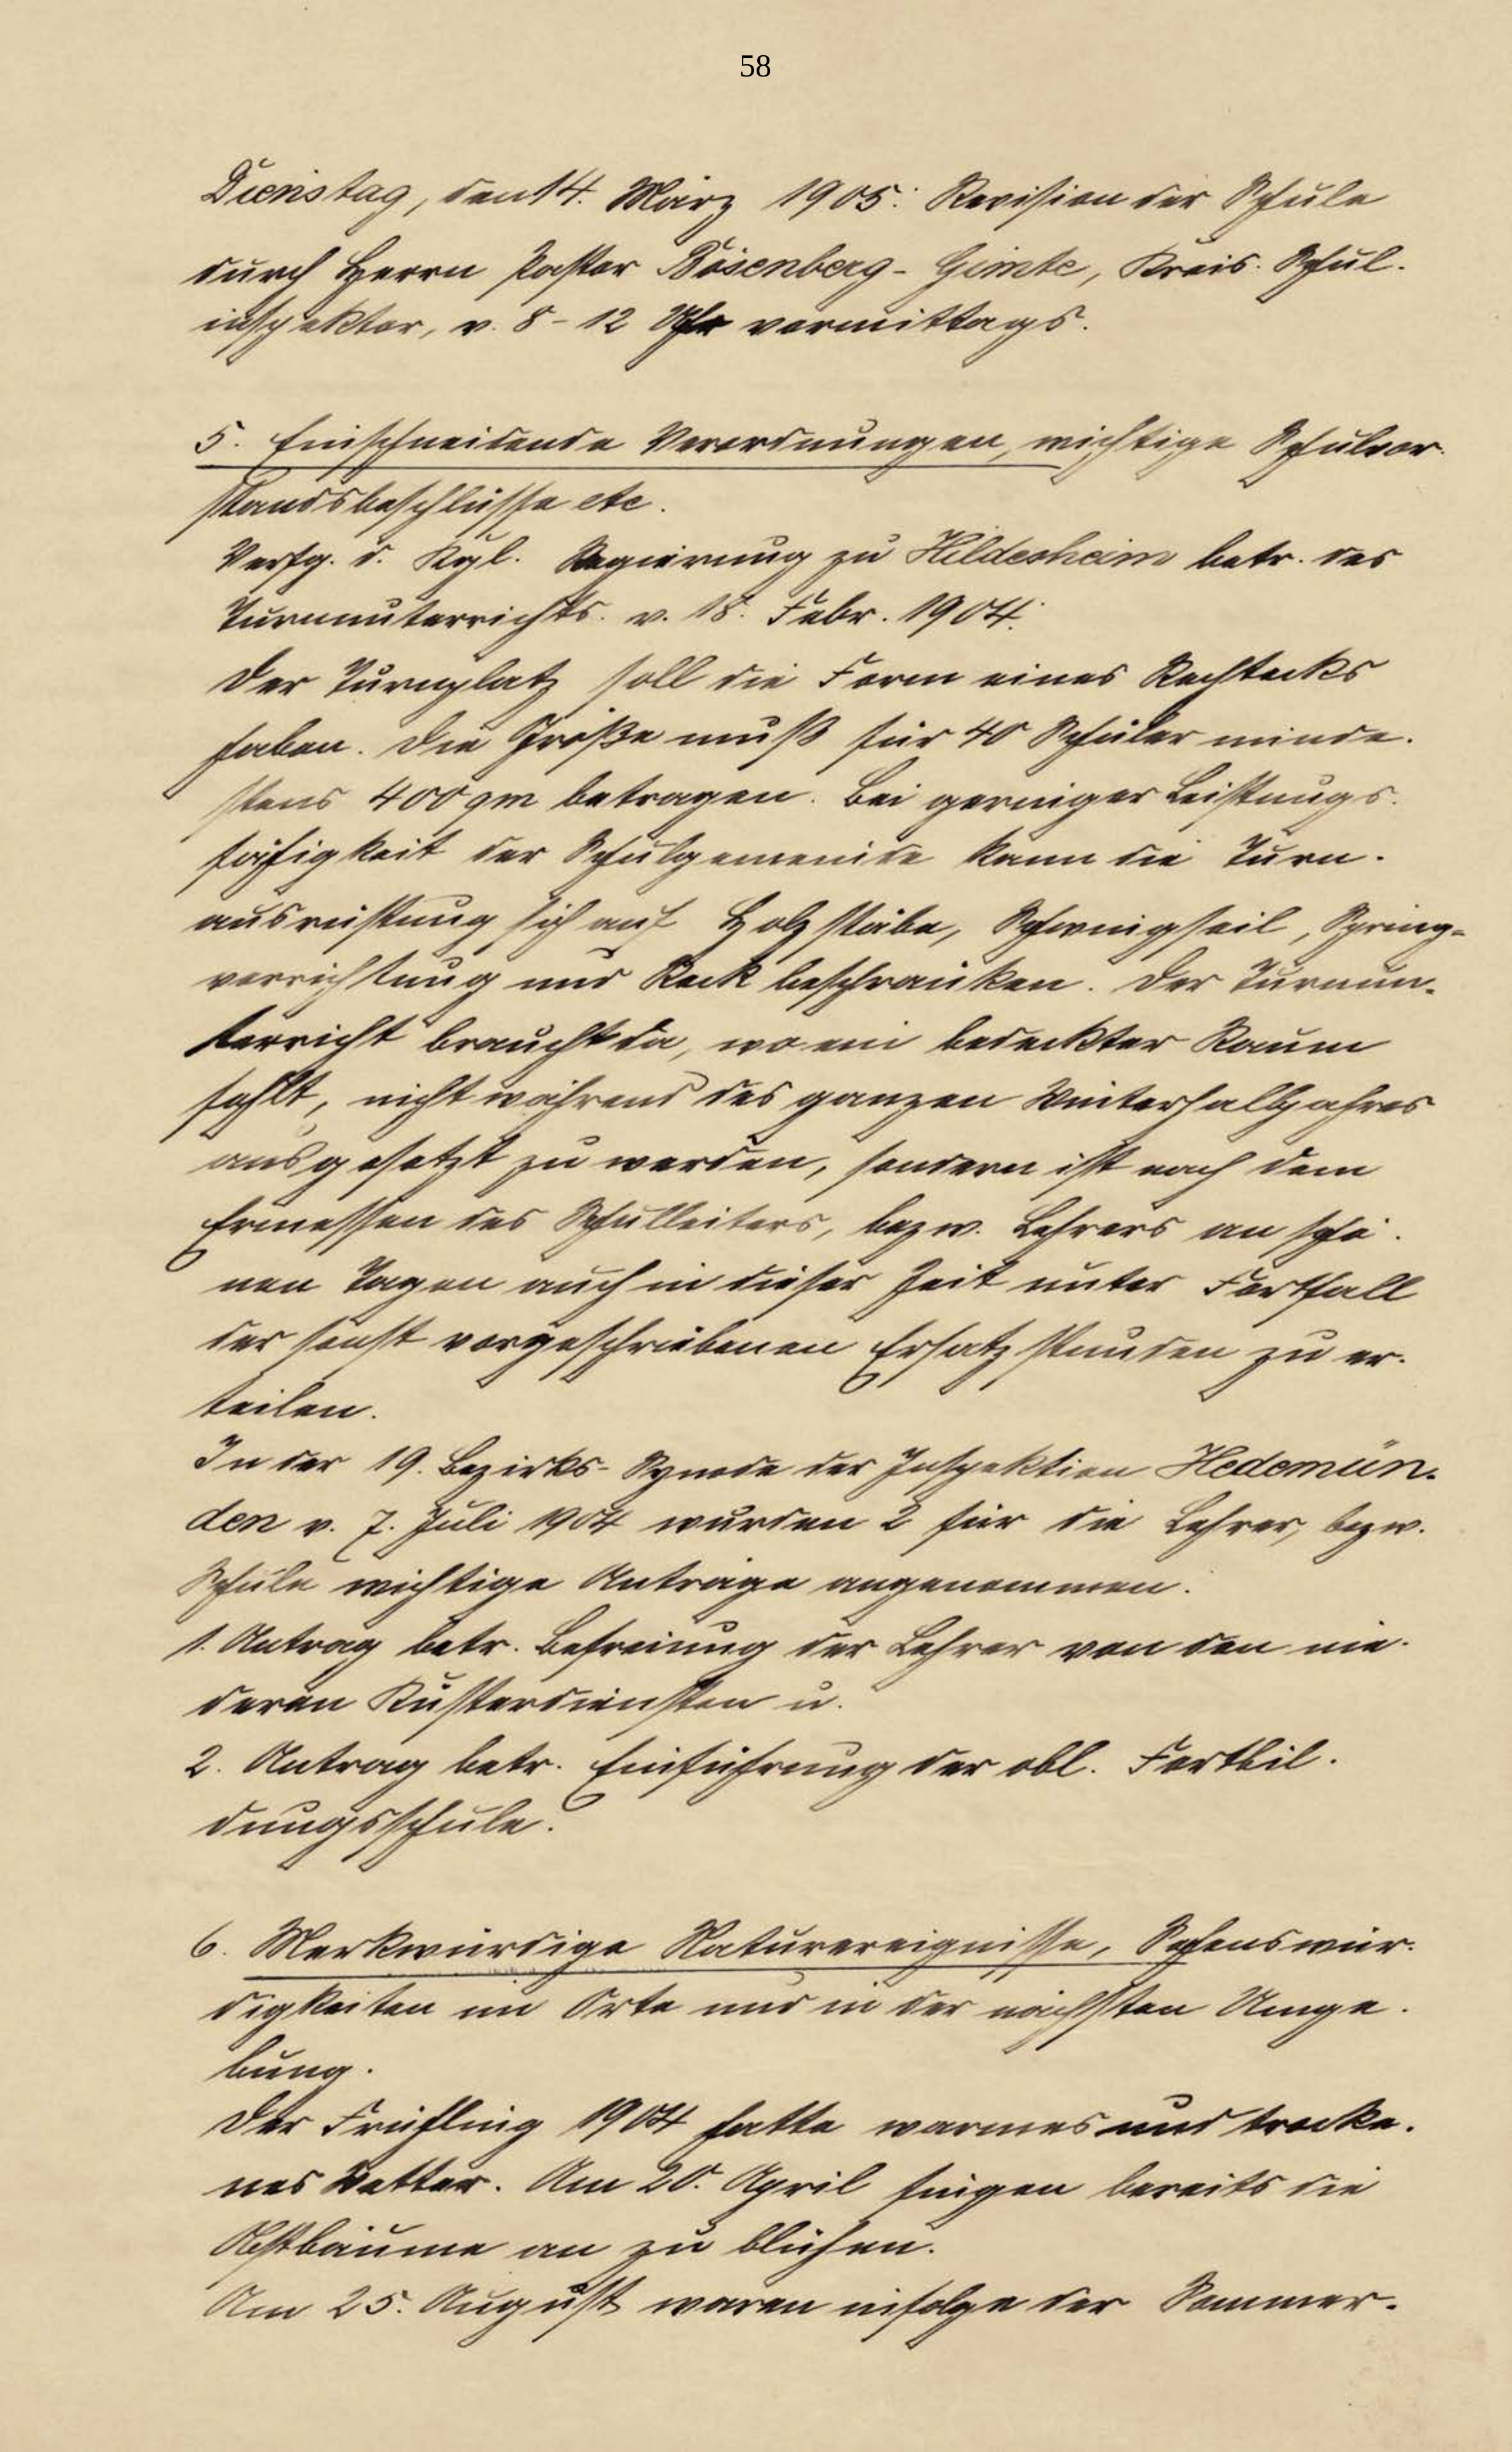 58
Dienstag, den 14. März 1905: Revision der Schule
durch Herrn Pastor Bösenberg-Gimte, Kreis-Schul-
inspektor, v. 8-12 Uhr vormittags.
5. Einschneidende Verordnungen, wichtige Schulvor-
standsbeschlüsse etc.
Verfg. d. Kgl. Regierung zu Hildesheim betr. des
Turnunterrichts. v. 18. Febr. 1904:
Der Turnplatz soll die Form eines Rechtecks
haben. Die Größe muß für 40 Schüler minde-
stens 400 qm betragen. Bei geringer Leistungs-
fähigkeit der Schulgemeinde kann die Turn-
ausrüstung sich auf Holzstäbe, Schwingseil, Spring-
vorrichtung und Reck beschränken. Der Turnun-
terricht braucht da, wo ein bedeckter Raum
fehlt, nicht während des ganzen Winterhalbjahres
ausgesetzt zu werden, sondern ist nach dem
Ermessen des Schulleiters, bezw. Lehrers an schö-
nen Tagen auch in dieser Zeit unter Fortfall
der sonst vorgeschriebenen Ersatzstunden zu er-
teilen.
In der 19. Bezirks-Synode der Inspektion Hedemün-
den v. 7. Juli 1904 wurden 2 für die Lehrer, bezw.
Schule wichtige Anträge angenommen.
1. Antrag betr. Befreiung der Lehrer von den nie-
deren Küsterdiensten u.
2. Antrag betr. Einführung der obl. Fortbil-
dungsschule.
6. Merkwürdige Naturereignisse, Sehenswür-
digkeiten im Orte und in der nächsten Umge-
bung.
Der Frühling 1904 hatte warmes und trocke-
nes Wetter. Am 20. April fingen bereits die
Obstbäume an zu blühen.
Am 25. August waren infolge der Sommer-